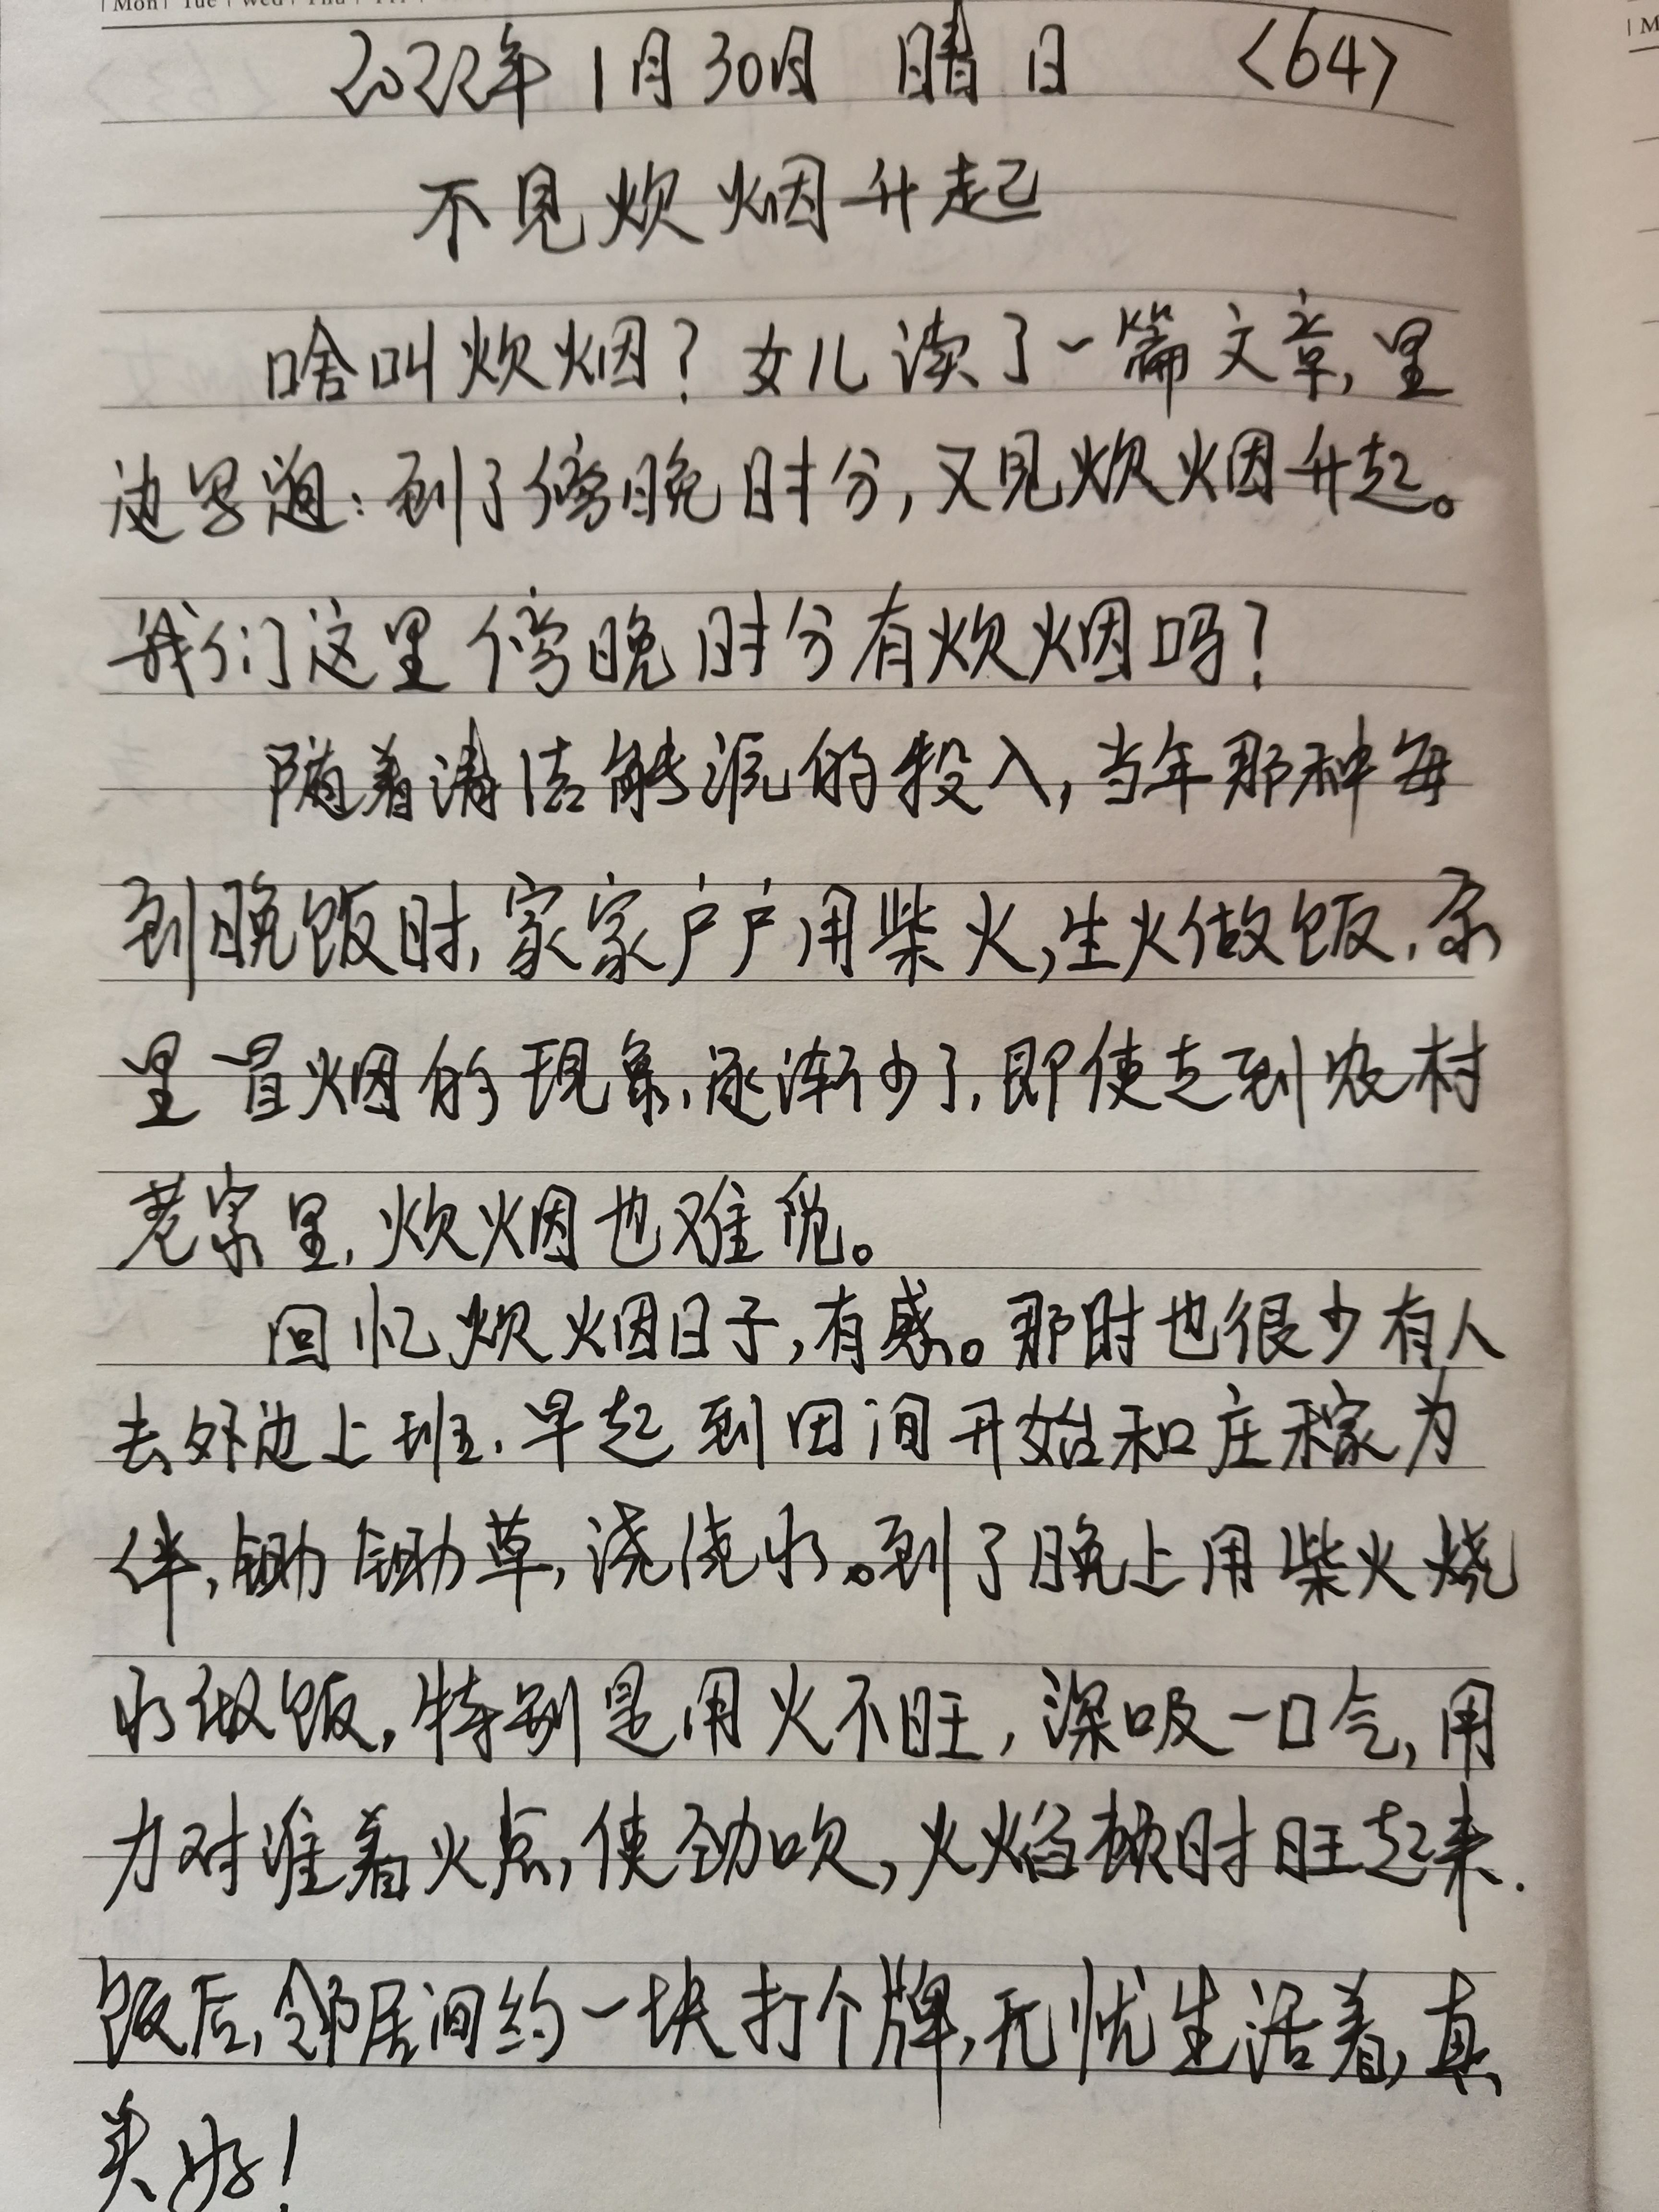 Mon Tue Wed Thu Fri
2022年1月30日 晴 日 <64>
不见炊烟升起
啥叫炊烟?女儿读了一篇文章,里
边写道:到了傍晚时分,又见炊烟升起。
我们这里傍晚时分有炊烟吗?
随着清洁能源的投入,当年那种每
到晚饭时,家家户户用柴火,生火做饭,家
里冒烟的现象,逐渐少了,即使走到农村
老家里,炊烟也难觅。
回忆炊烟日子,有感。那时也很少有人
去外边上班.早起到田间开始和庄稼为
伴,锄锄草,浇浇水。到了晚上用柴火烧
水做饭,特别是用火不旺,深吸一口气,用
力对准着火点,使劲吹,火焰顿时旺起来.
饭后,邻居间约一块打个牌,无忧生活着,真
美好!